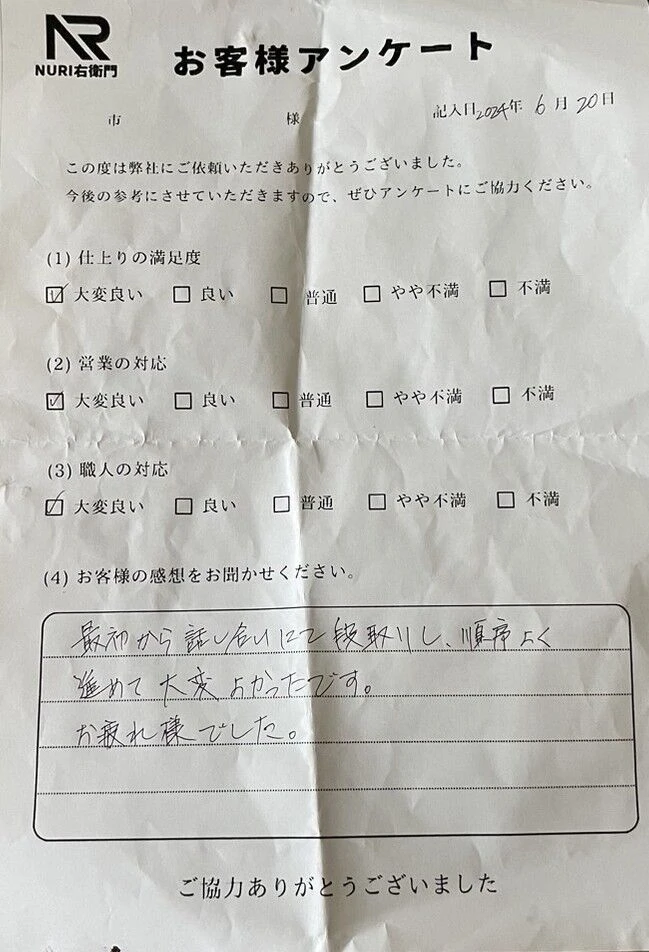 NR
NURI右衛門
お客様アンケート
市 様 記入日2024年 6月 20日
この度は弊社にご依頼いただきありがとうございました。
今後の参考にさせていただきますので、ぜひアンケートにご協力ください。
(1) 仕上りの満足度
☑ 大変良い □ 良い □ 普通 □ やや不満 □ 不満
(2) 営業の対応
☑ 大変良い □ 良い □ 普通 □ やや不満 □ 不満
(3) 職人の対応
☑ 大変良い □ 良い □ 普通 □ やや不満 □ 不満
(4) お客様の感想をお聞かせください。
最初から話し合いにて段取りし、順序よく
進めて大変よかったです。
お疲れ様でした。
ご協力ありがとうございました